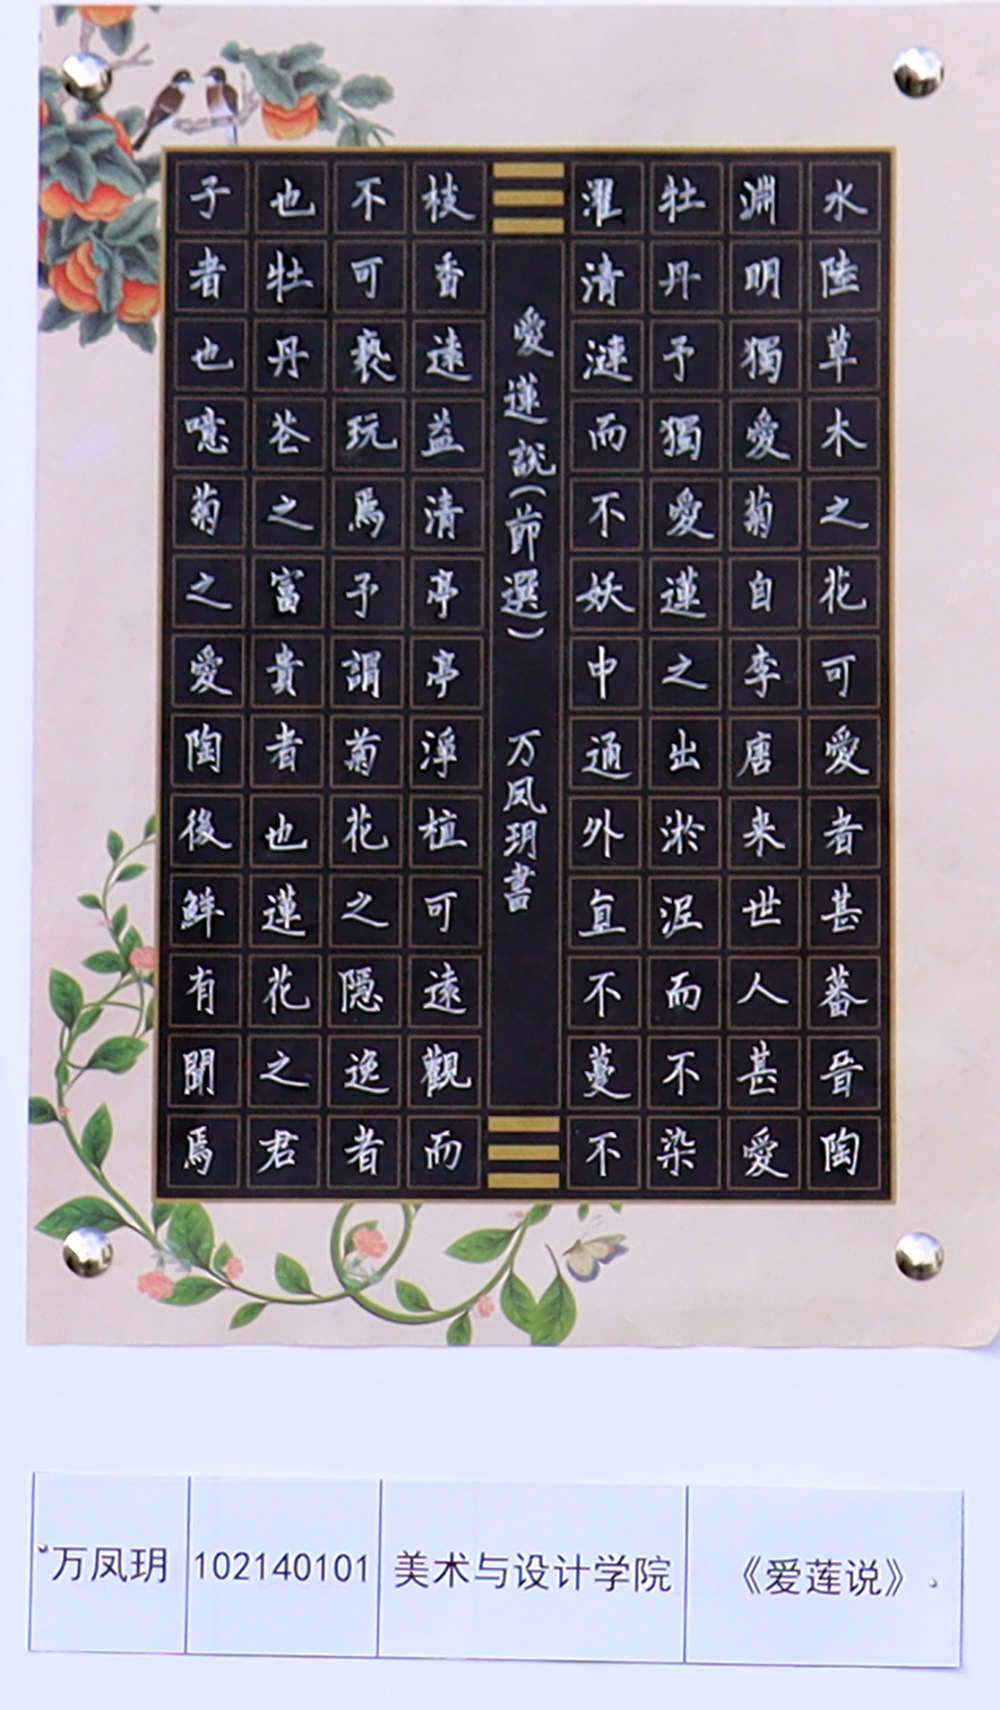 水陸草木之花可愛者甚蕃晉陶
淵明獨愛菊自李唐来世人甚愛
牡丹予獨愛蓮之出淤泥而不染
濯清漣而不妖中通外直不蔓不
愛蓮説(節選) 万凤玥書
枝香遠益清亭亭淨植可遠觀而
不可褻玩焉予謂菊花之隱逸者
也牡丹芲之富貴者也蓮花之君
子者也噫菊之愛陶後鮮有聞焉
万凤玥 102140101 美术与设计学院 《爱莲说》